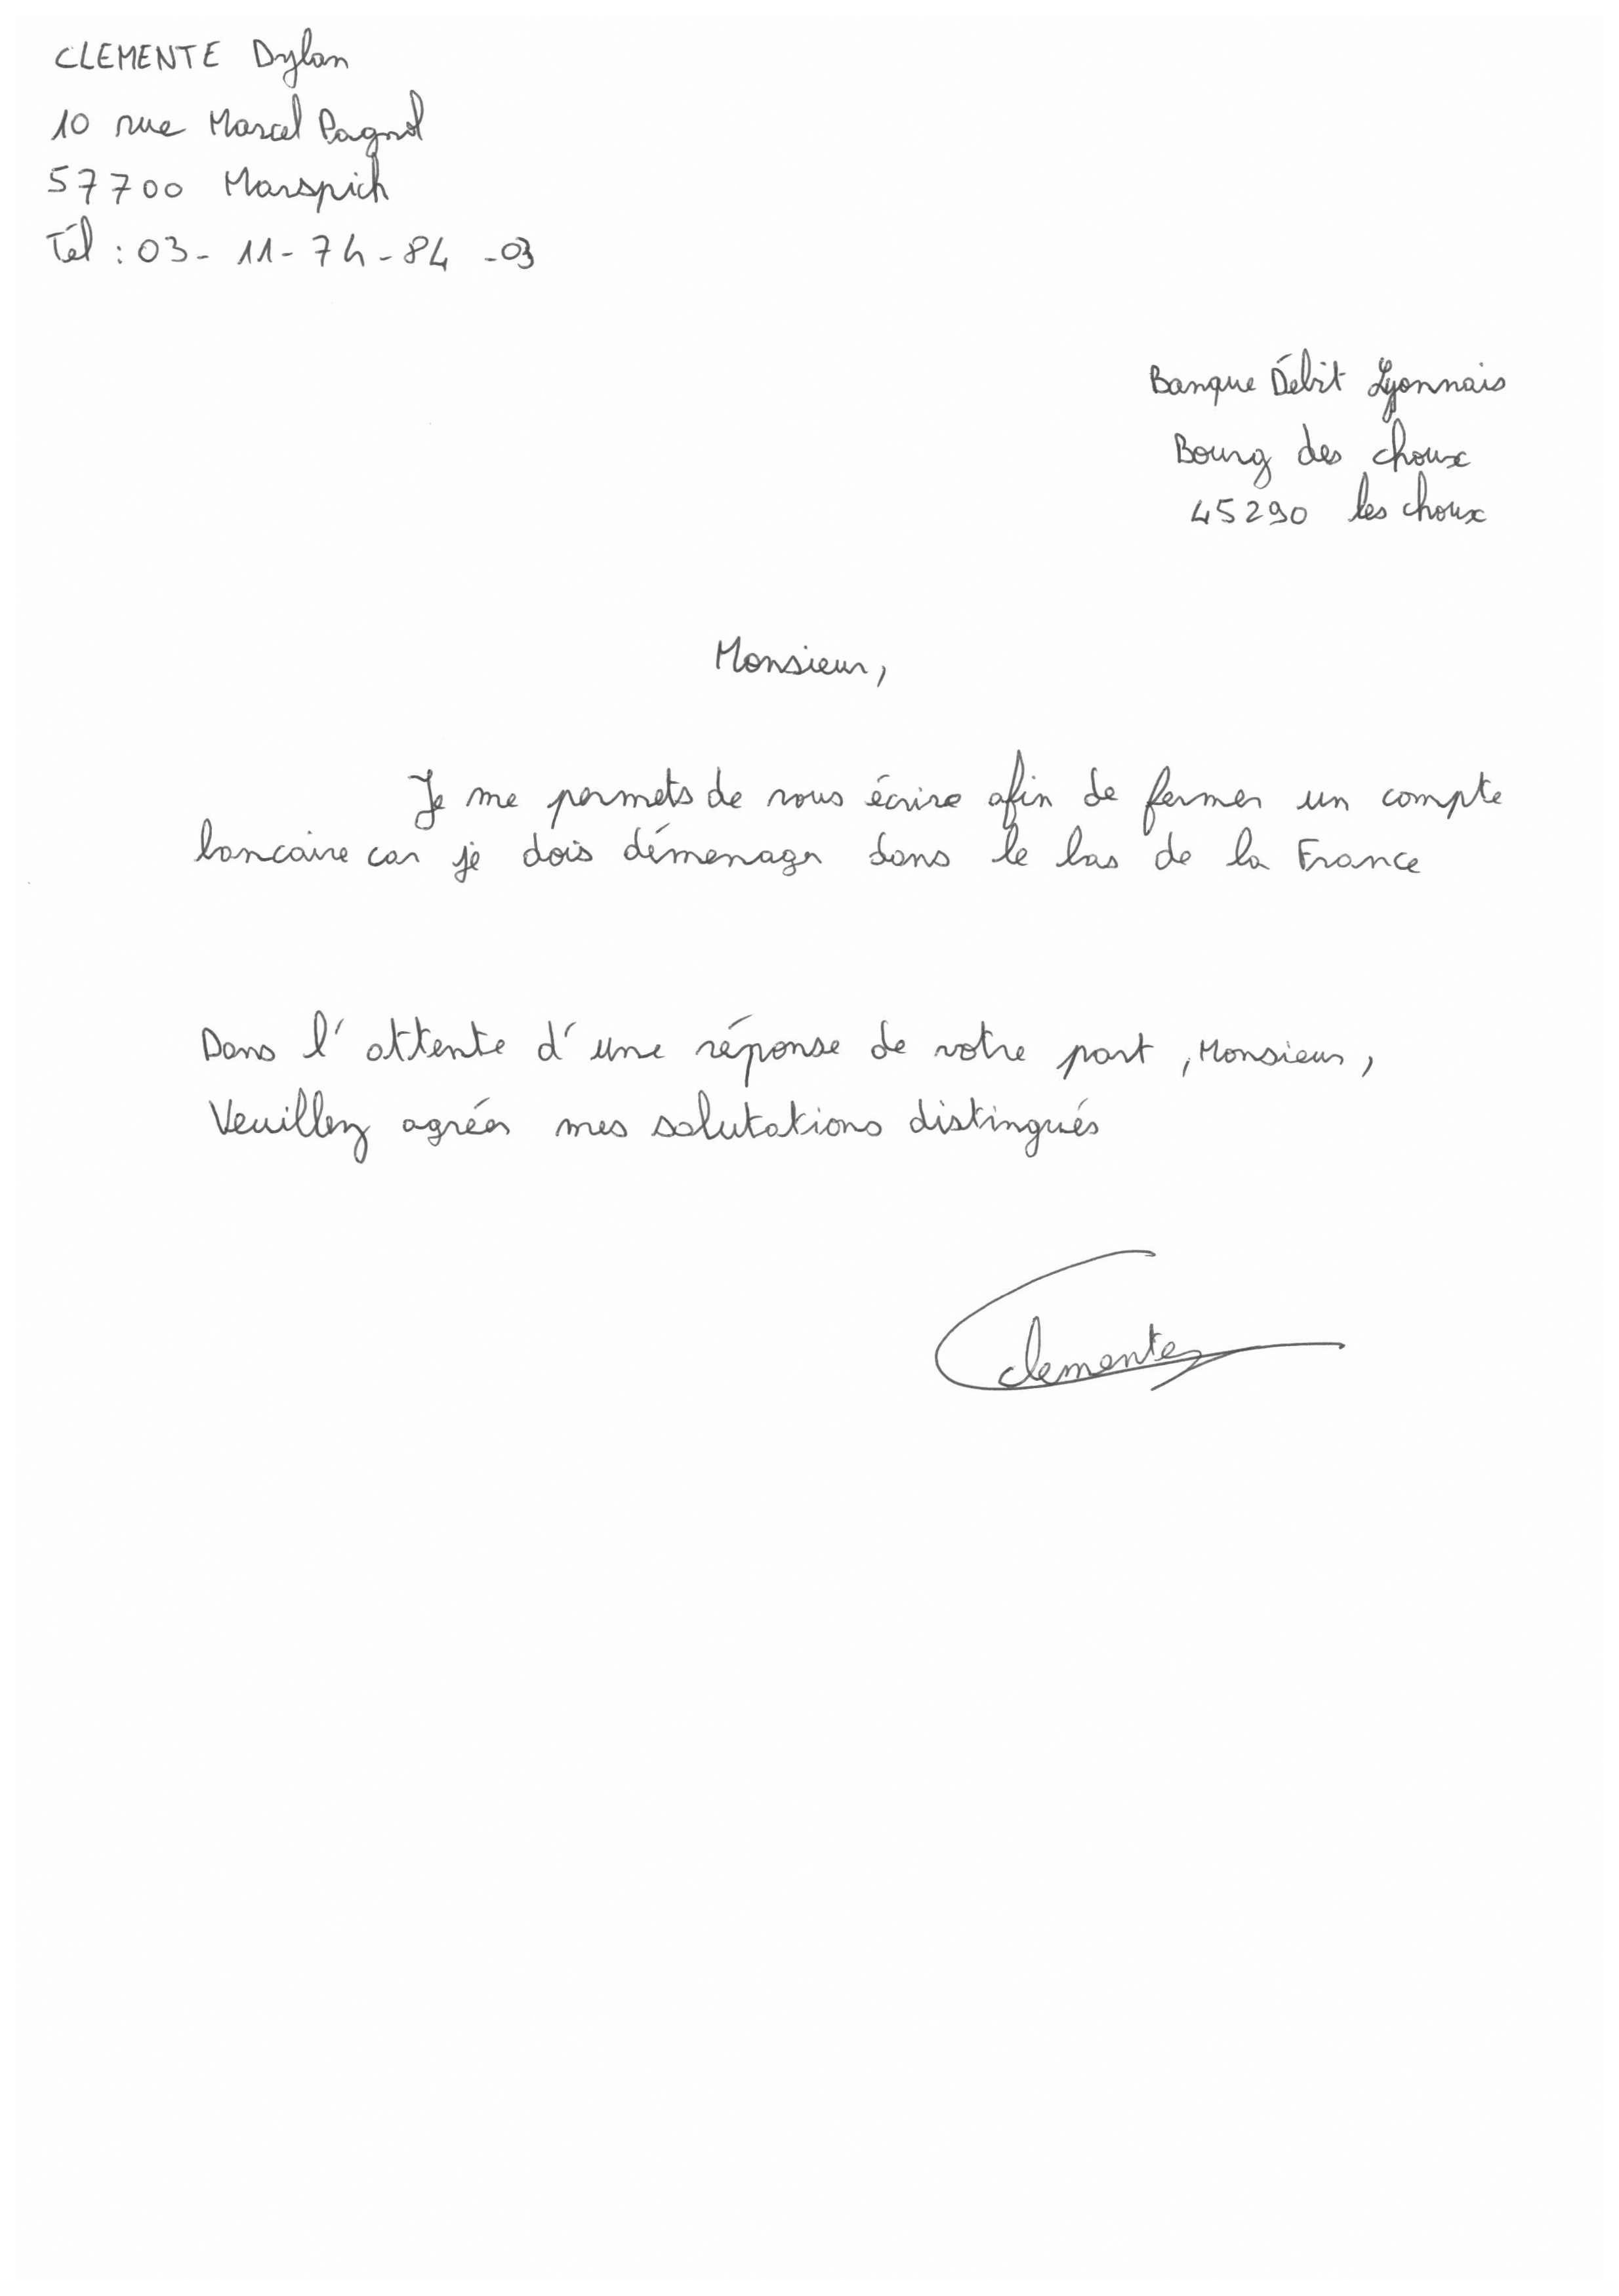 CLEMENTE Dylan
10 rue Marcel Pagnol
57700 Marspich
Tél : 03- 11- 74 - 84 -03
Banque Débit Lyonnais
Bourg des choux
45290 les choux
Monsieur,
Je me permets de vous écrire afin de fermer un compte
bancaire car je dois démenager dans le bas de la France
Dans l'attente d'une réponse de votre part, Monsieur,
Veuillez agréer mes salutations distingués
Clemente